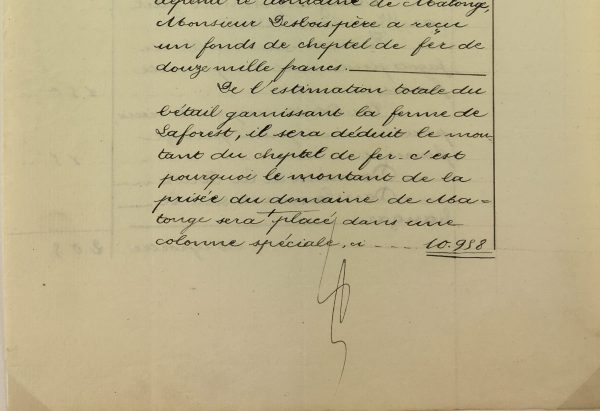 dépend le domaine de Matonge,
Monsieur Desbois père a reçu
un fonds de cheptel de fer de
douze mille francs.
De l'estimation totale du
bétail garnissant la ferme de
Laforest, il sera déduit le mon-
tant du cheptel de fer. c'est
pourquoi le montant de la
prisée du domaine de Ma=
tonge sera placé dans une
colonne spéciale, ci 10.988